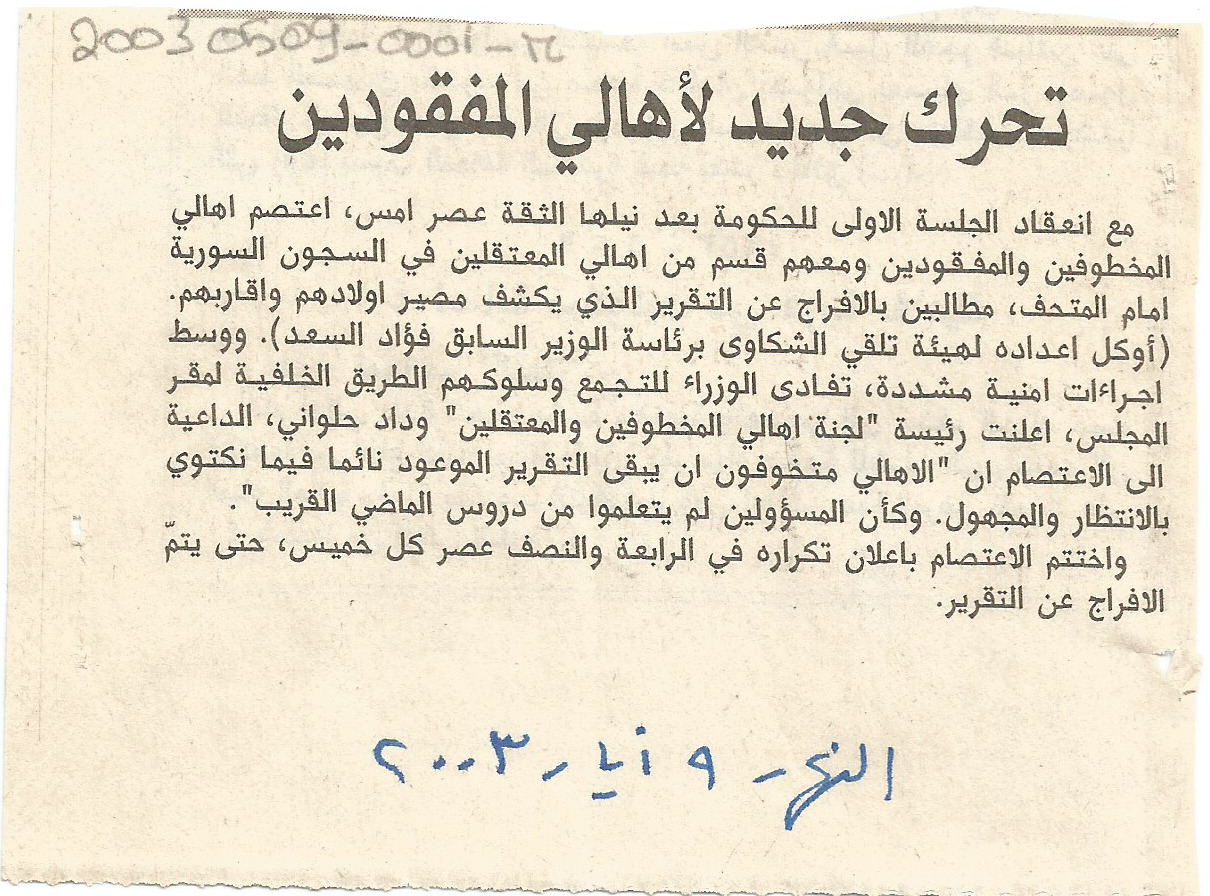 20030509-0001-M
تحرك جديد لأهالي المفقودين
مع انعقاد الجلسة الاولى للحكومة بعد نيلها الثقة عصر امس، اعتصم اهالي
المخطوفين والمفقودين ومعهم قسم من اهالي المعتقلين في السجون السورية
امام المتحف، مطالبين بالافراج عن التقرير الذي يكشف مصير اولادهم واقاربهم.
(أوكل اعداده لهيئة تلقي الشكاوى برئاسة الوزير السابق فؤاد السعد). ووسط
اجراءات امنية مشددة، تفادى الوزراء للتجمع وسلوكهم الطريق الخلفية لمقر
المجلس، اعلنت رئيسة "لجنة اهالي المخطوفين والمعتقلين" وداد حلواني، الداعية
الى الاعتصام ان "الاهالي متخوفون ان يبقى التقرير الموعود نائما فيما نكتوي
بالانتظار والمجهول. وكأن المسؤولين لم يتعلموا من دروس الماضي القريب".
واختتم الاعتصام باعلان تكراره في الرابعة والنصف عصر كل خميس، حتى يتمّ
الافراج عن التقرير.
النهار - ٩ أيار - ٢٠٠٣